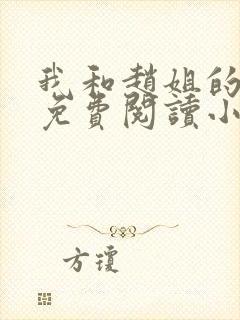 我和趙姐的
免費閱讀小
方瓊